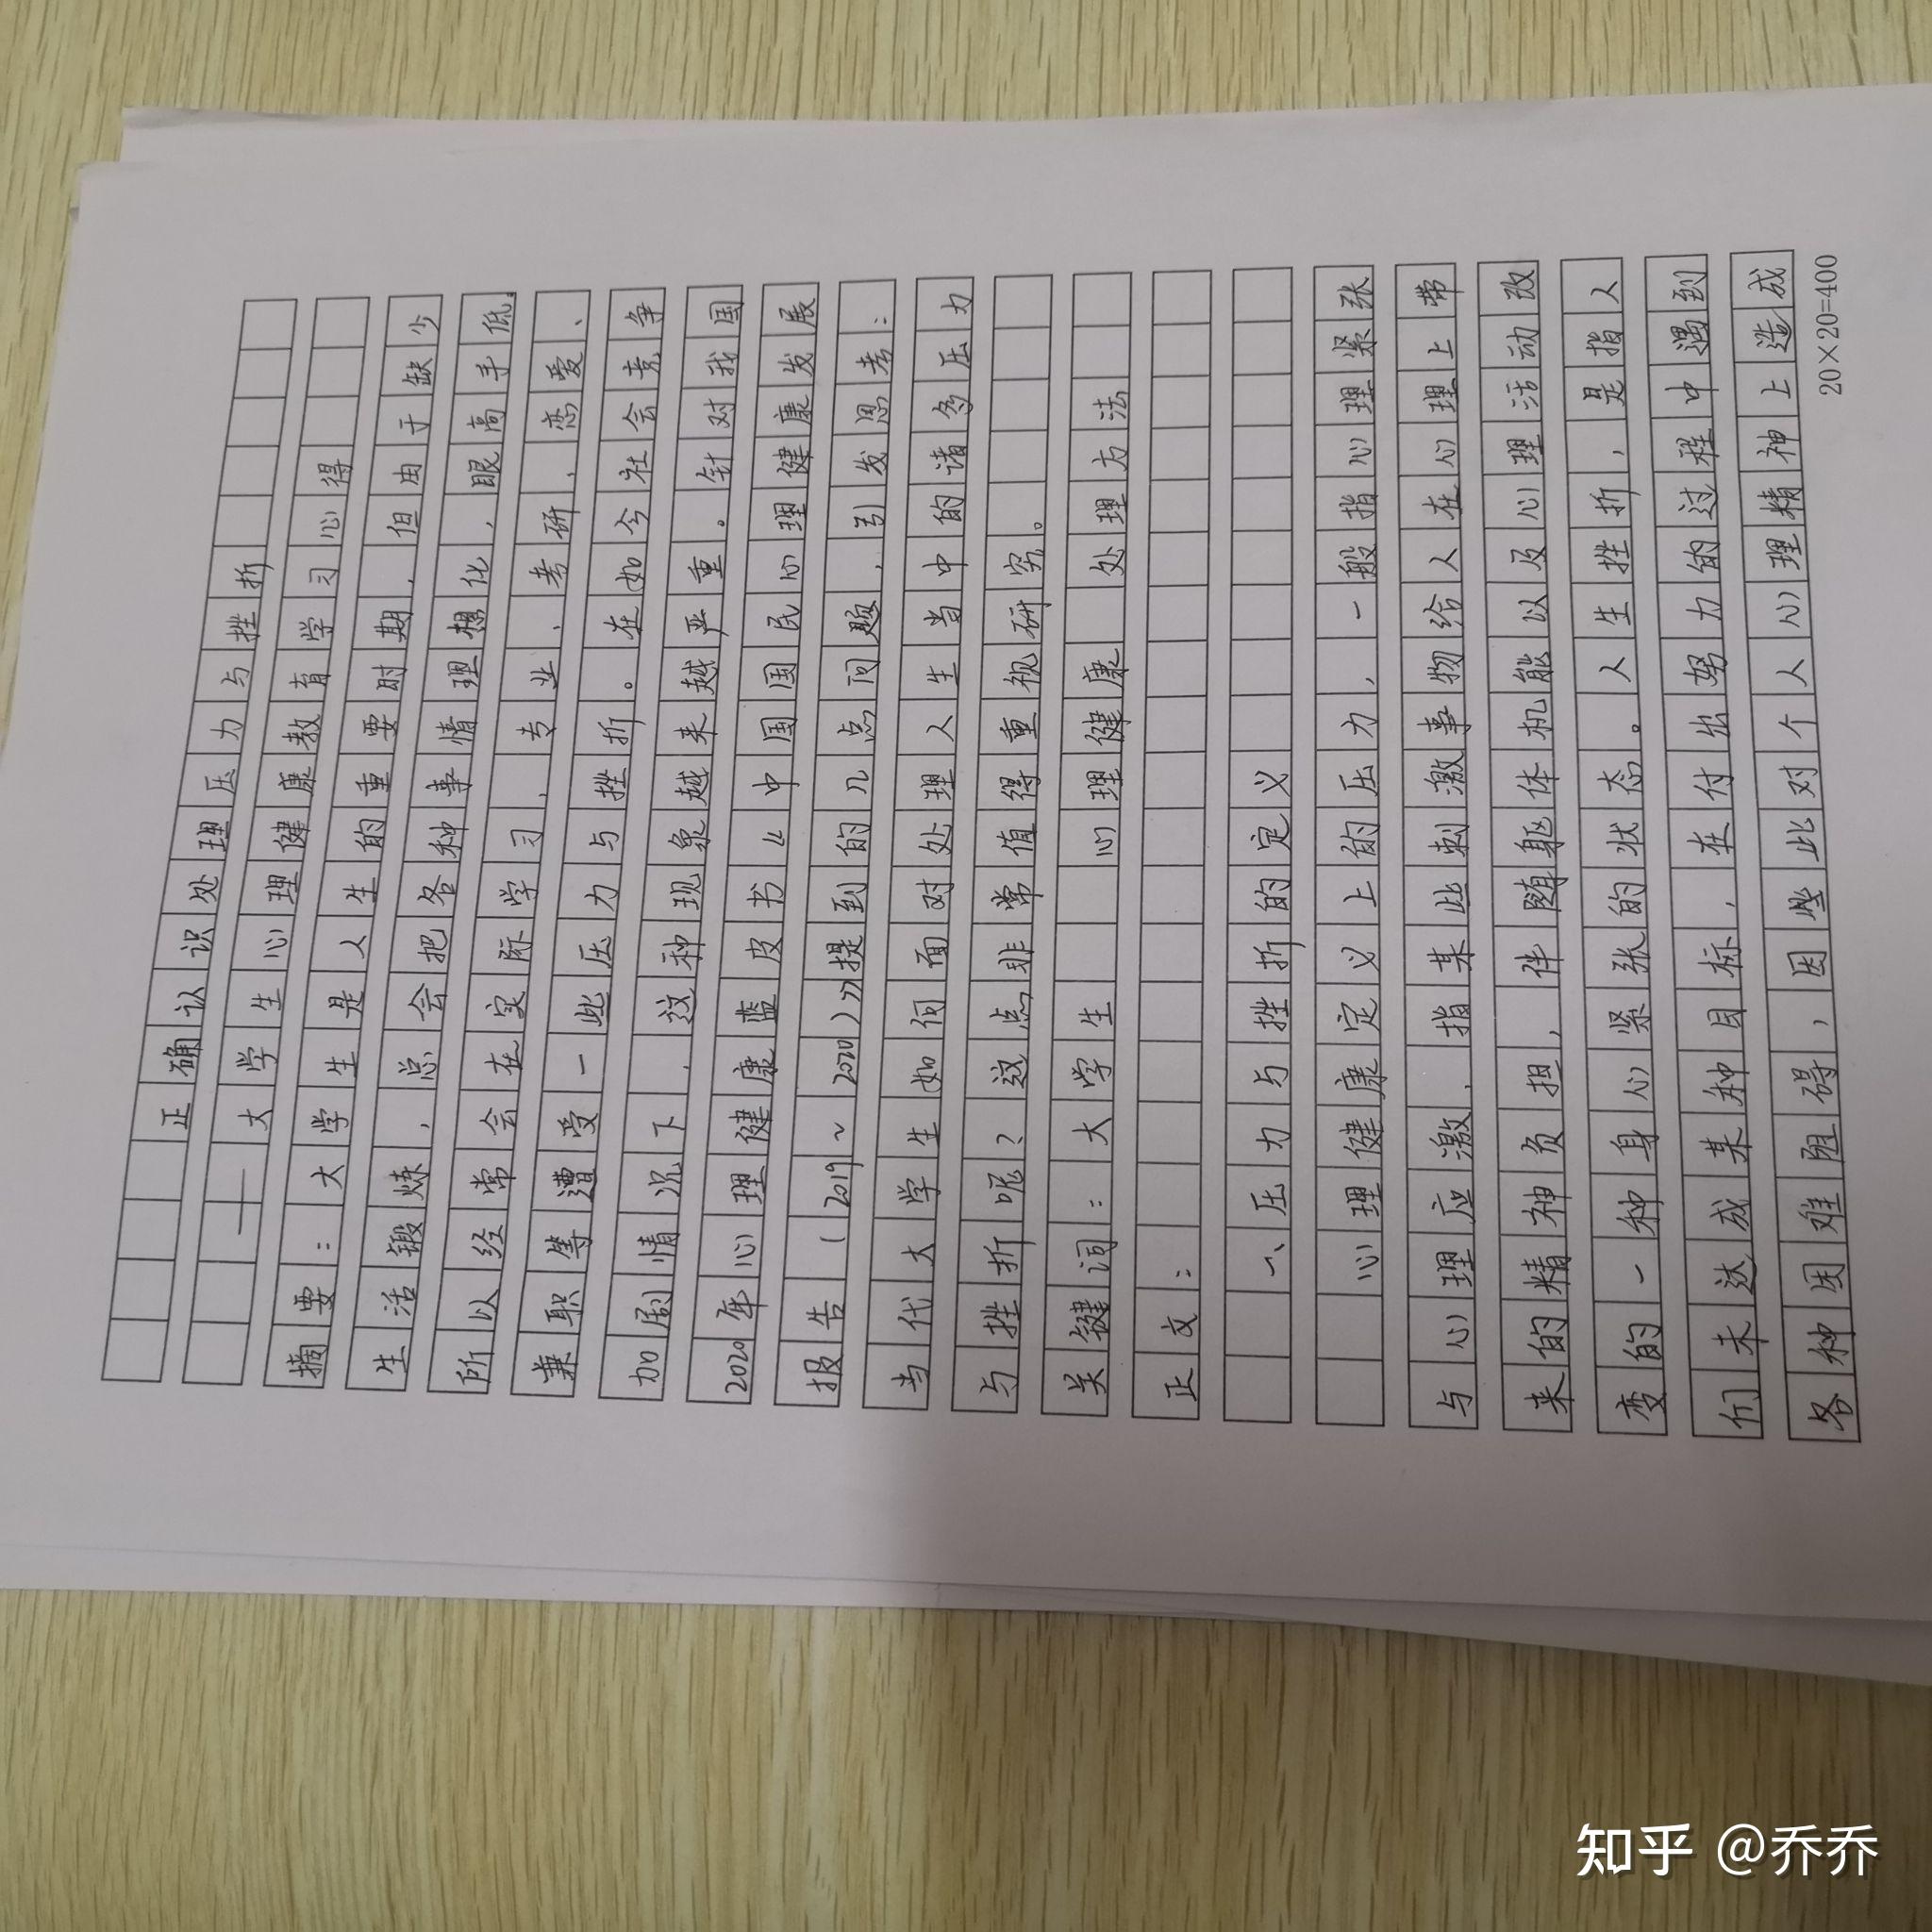 正确认识处理压力与挫折
——大学生心理健康教育学习心得
摘要：大学生是人生的重要时期，但由于缺少
生活锻炼，总会把各种事情理想化，眼高手低，
所以经常会在实际学习、专业、考研、恋爱、
兼职等遭受一些压力与挫折。在如今社会竞争
加剧情况下，这种现象越来越严重。针对我国
2020年心理健康蓝皮书《中国国民心理健康发展
报告（2019~2020）》提到的几点问题，引发思考：
当代大学生如何面对处理人生当中的诸多压力
与挫折呢？这点非常值得重视研究。
关键词：大学生 心理健康 处理方法
正文：
一、压力与挫折的定义
心理健康定义上的压力，一般指心理紧张
与心理应激，指某些刺激事物给人在心理上带
来的精神负担，伴随躯体机能以及心理活动改
变的一种身心紧张的状态。人生挫折，是指人
们未达成某种目标，在付出努力的过程中遇到
各种困难阻碍，因此对个人心理精神上造成
20×20=400
知乎 @乔乔